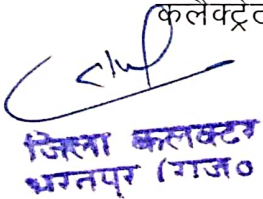 कलैक्ट्रेट
जिला कलक्टर
भरतपुर (राज०